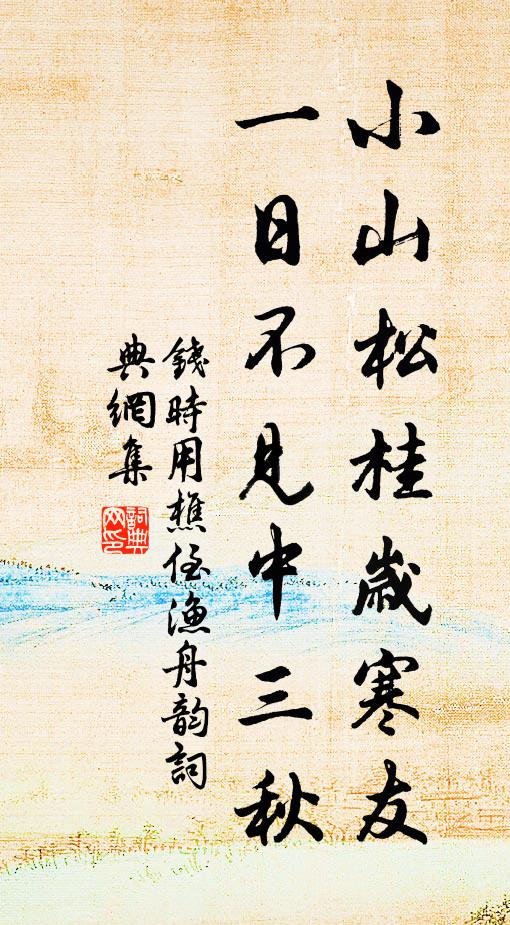 小山松桂歳寒友
一日不見中三秋
錢時用樵侄漁舟韵詞
典網集
詞典網印